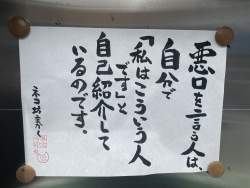 悪口を言う人は、
自分で
「私はこういう人
です」と
自己紹介して
いるのです。